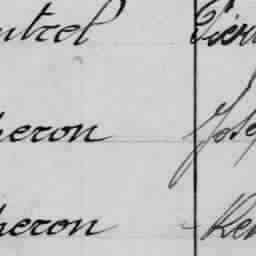 ntrel Pierr
heron Josep
heron - Ren